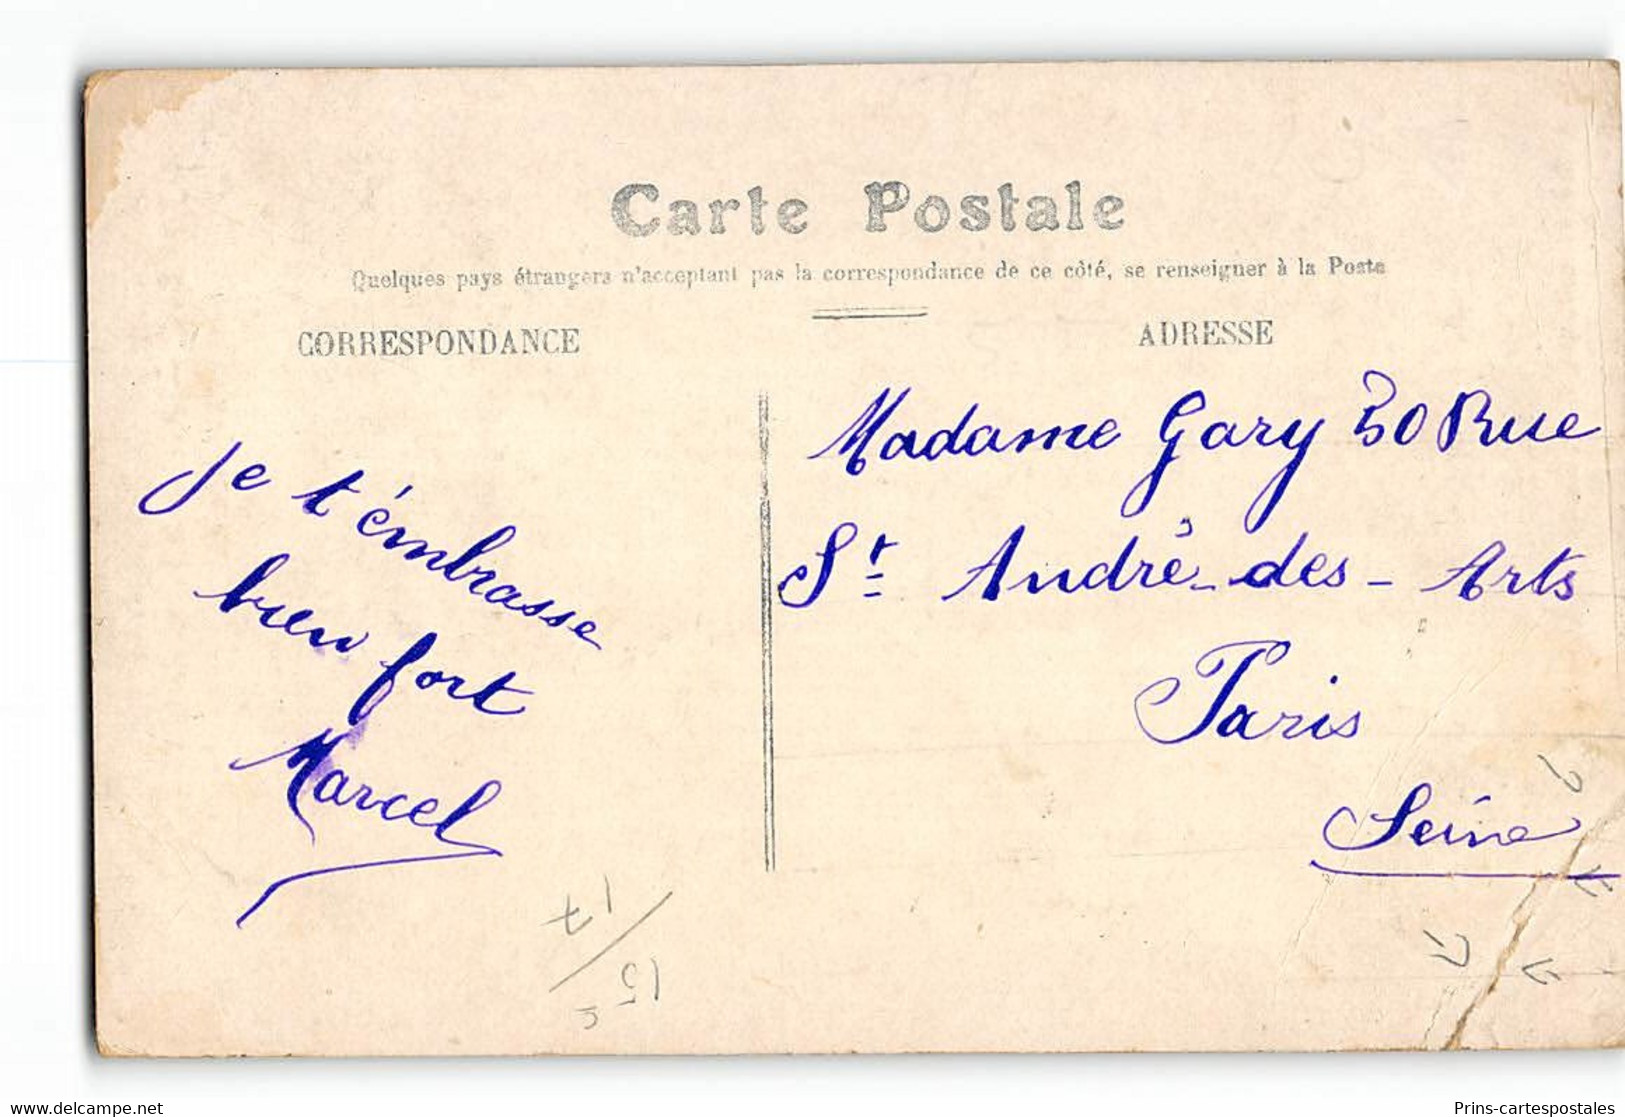 Carte Postale
Quelques pays étrangers n'acceptant pas la correspondance de ce côté, se renseigner à la Poste
CORRESPONDANCE
Je t'émbrasse
bien fort
Marcel
ADRESSE
Madame Gary 30 Rue
St André-des-Arts
Paris
Seine
www.delcampe.net
Prins-cartespostales